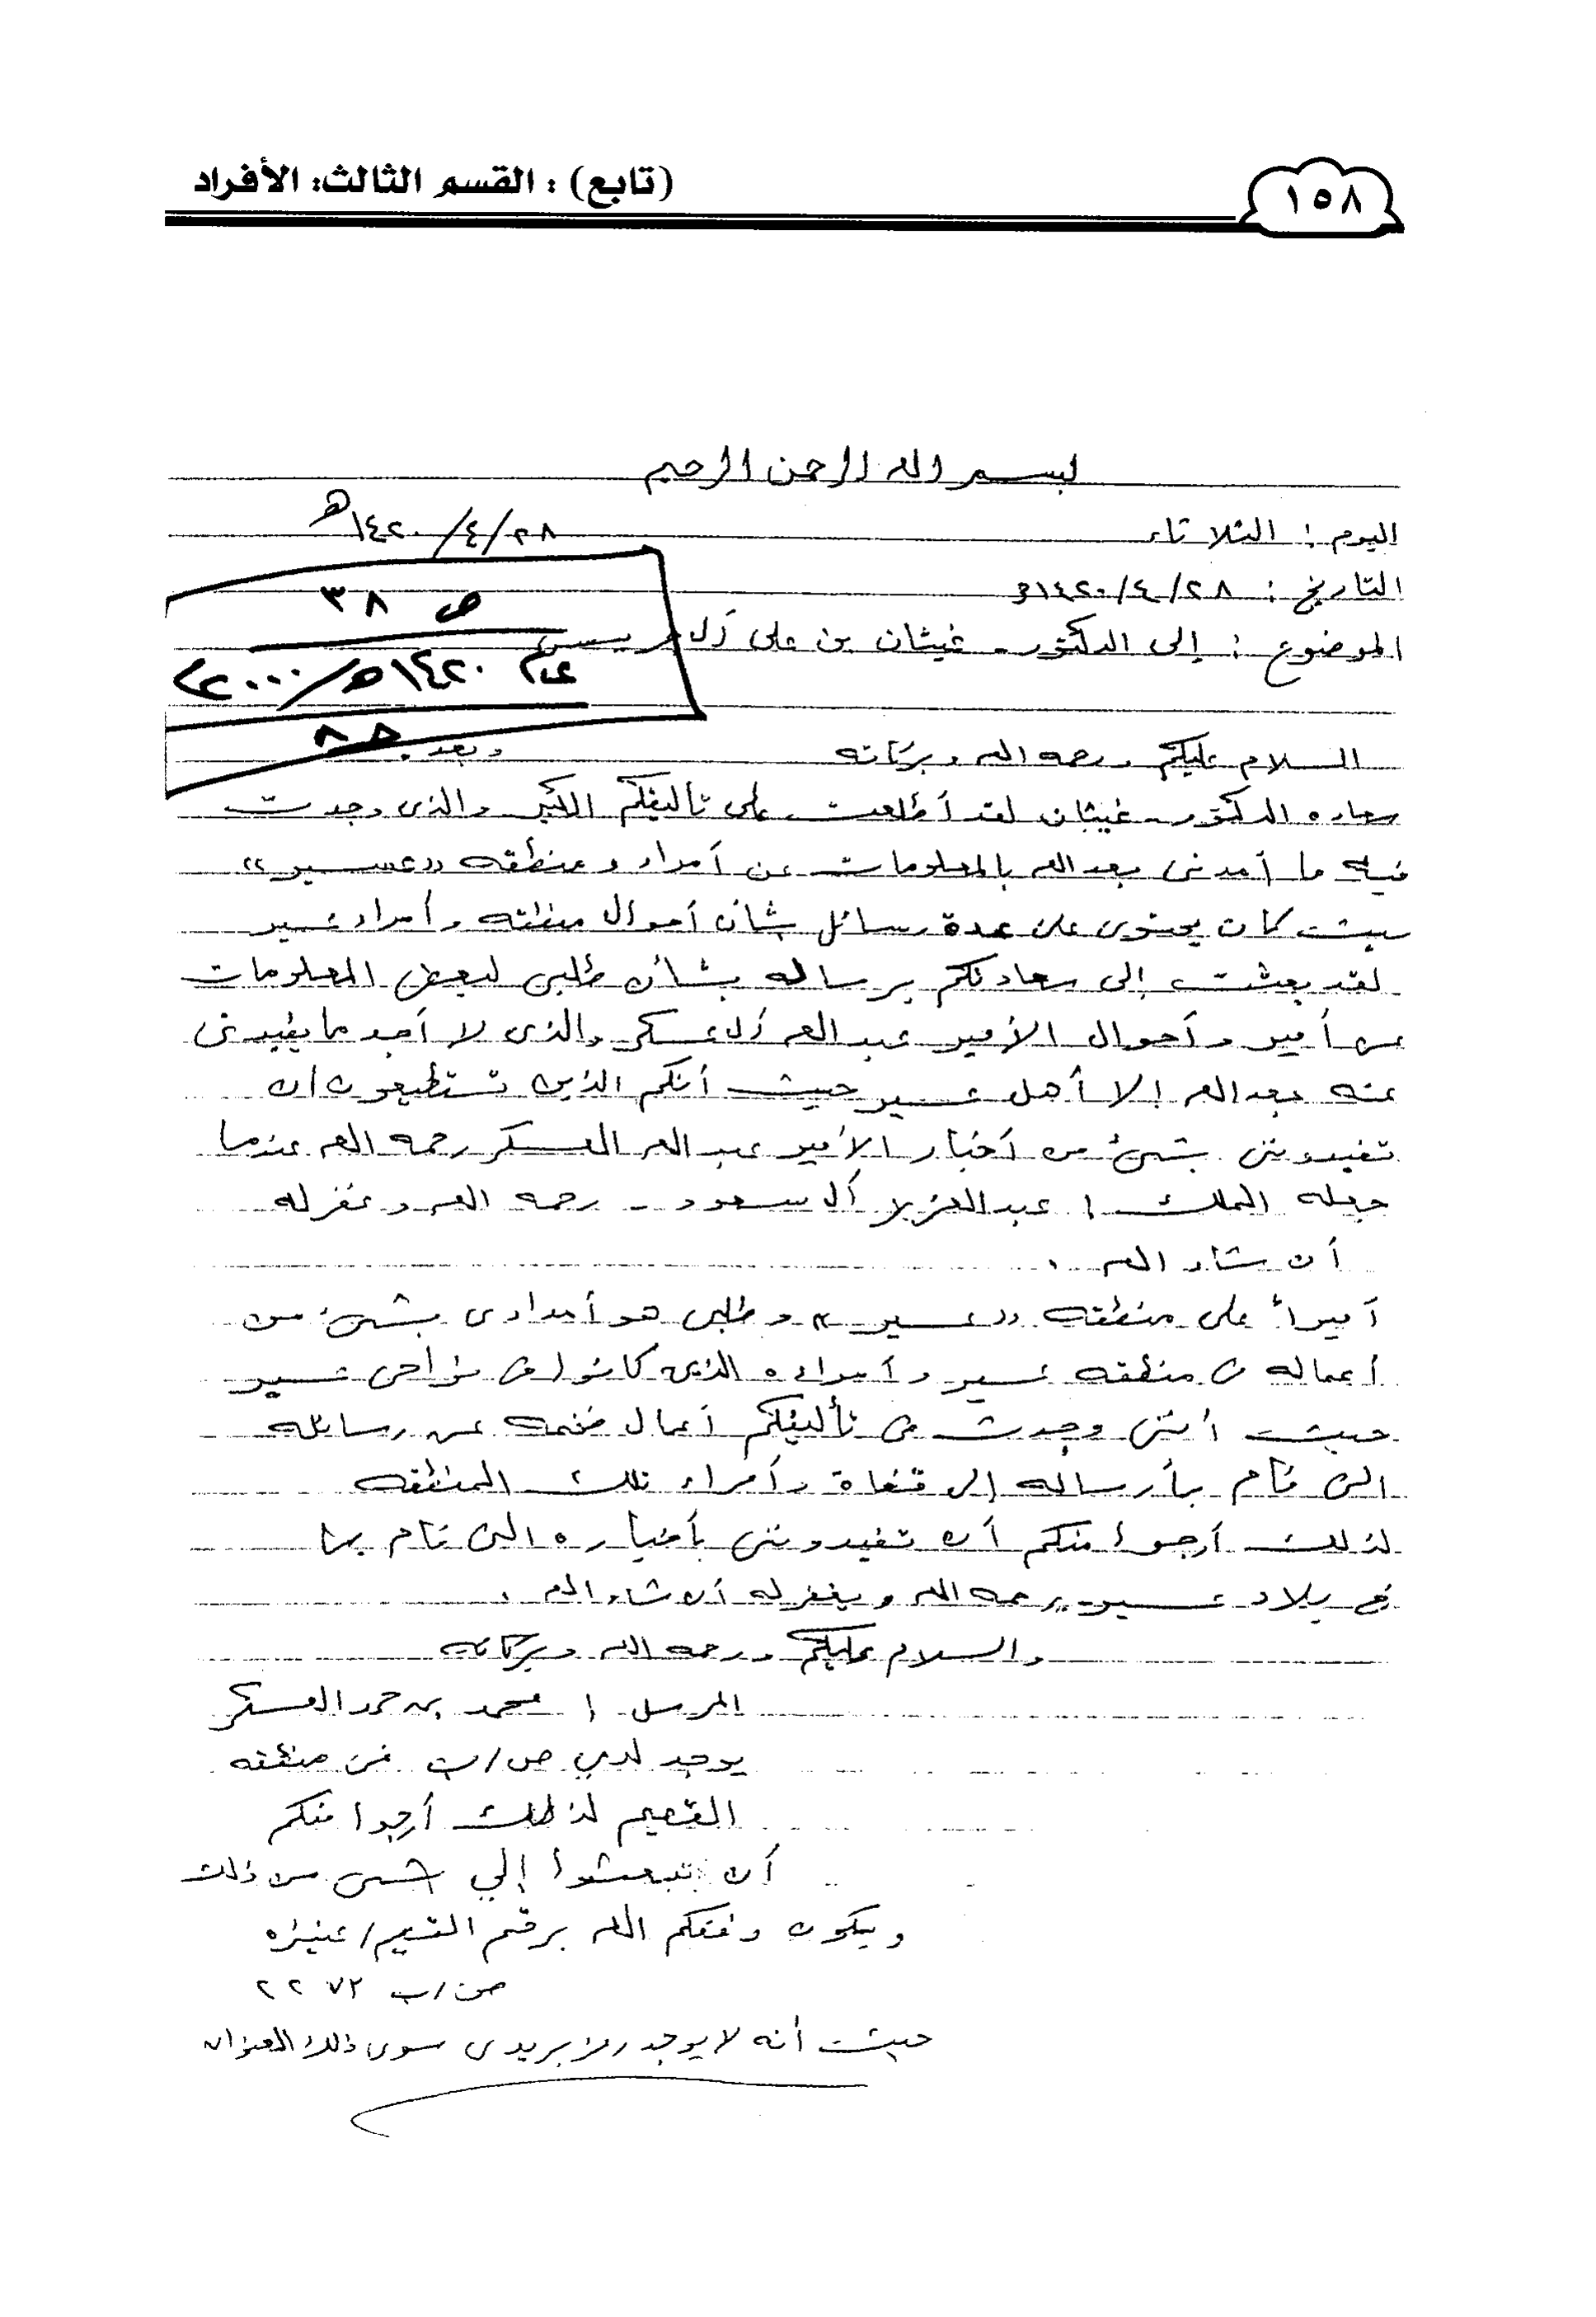 ١٥٨
(تابع) : القسم الثالث: الأفراد
بسم الله الرحمن الرحيم
اليوم : الثلاثاء
٢٨/٤/١٤٢٠هـ
التاريخ : ٢٨/٤/١٤٢٠هـ
ص ٣٨
الموضوع : إلى الدكتور غيثان بن علي آل جريس
عام ١٤٢٠هـ/٢٠٠٠م
السلام عليكم ورحمه الله وبركاته وبعد .
سعاده الدكتور غيثان لقد أطلعت على تأليفكم الكثير والذي وجدت
فيه ما أمدني بعد الله بالمعلومات عن أمراء ومنطقه «عسير»
حيث كان يحتوي على عدة رسائل بشأن أحوال منطقته وأمراء عسير
لقد بعثت إلى سعادتكم برساله بشأن طلبي لبعض المعلومات
عن أمير وأحوال الأمير عبد الله آل عسكر والذي لا أجد ما يفيدني
عنه بعد الله إلا أهل عسير حيث أنكم الذين تستطيعون أن
تفيدونني بشيء من أخبار الأمير عبد الله العسكر رحمه الله عندما
جعله الملك / عبدالعزيز آل سعود - رحمه الله وغفر له
أن شاء الله .
أميراً على منطقه «عسير» وطلبي هو أمدادي بشيء من
أعماله في منطقه عسير وأمراءه الذين كانوا في نواحي عسير
حيث أنني وجدت في تأليفكم أعمال ضخمه عن رسائله
التي قام بأرساله إلى قضاة وأمراء تلك المنطقه
لذلك أرجوا منكم أن تفيدونني بأخباره التي قام بها
في بلاد عسير يرحمه الله ويغفر له أن شاء الله .
والسلام عليكم ورحمه الله وبركاته
المرسل / محمد بن حمد العسكر
يوجد لدي ص/ب في منطقه
القصيم لذلك أرجوا منكم
أن تبعثوا إلي شيء من ذلك
ويكون وفقكم الله برقم القصيم/عنيزه
ص/ب ٢٢٧٢
حيث أنه لا يوجد رمز بريدي سوى ذلك العنوان